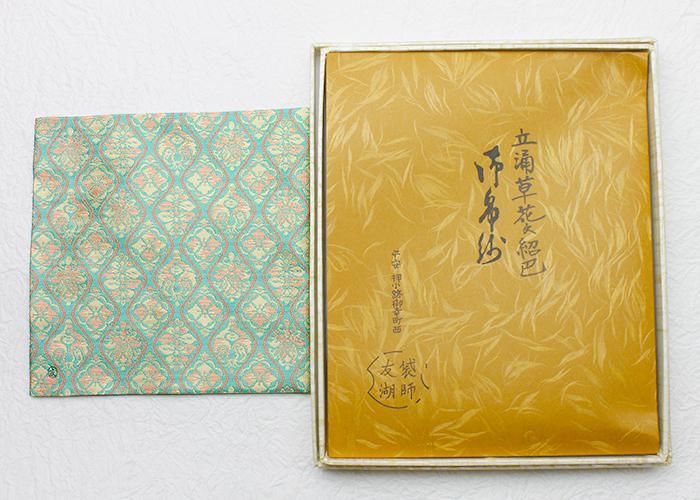 立涌草花文紹巴
御帛紗
平安 押小路御幸町西
袋師
友湖